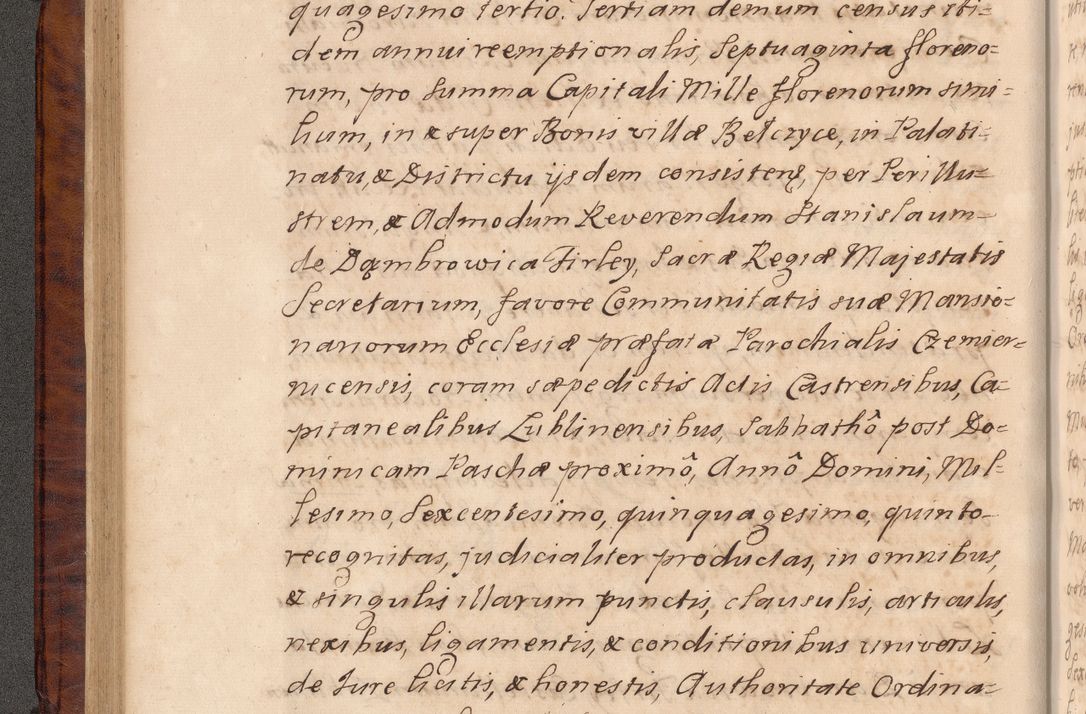 quagesimo tertio. Tertiam demum census iti=
dem annui reemptionalis, Septuaginta floreno=
rum, pro Summa Capitali Mille florenorum simi=
lium, in & super Bonis villæ Bełczyce, in Palati=
natu, & Districtu ijsdem consisten̄, per Perillu=
strem, & Admodum Reverendum Stanislaum
de Dąmbrowica Firley, Sacræ Regiæ Majestatis
Secretarium, favore Communitatis suæ Mansio=
nariorum Ecclesiæ præfatæ Parochialis Czemier=
nicensis, coram sæpedictis Actis Castrensibus, Ca=
pitanealibus Lublinensibus, Sabbathô post Do=
minicam Paschæ proximô, Annô Domini, Mil=
lesimo, Sexcentesimo, quinquagesimo, quinto
recognitas, judicialiter productas, in omnibus,
& singulis illarum punctis, clausulis, articulis,
nexibus, ligamentis, & conditionibus universis,
de Jure licitis, & honestis, Authoritate Ordina=